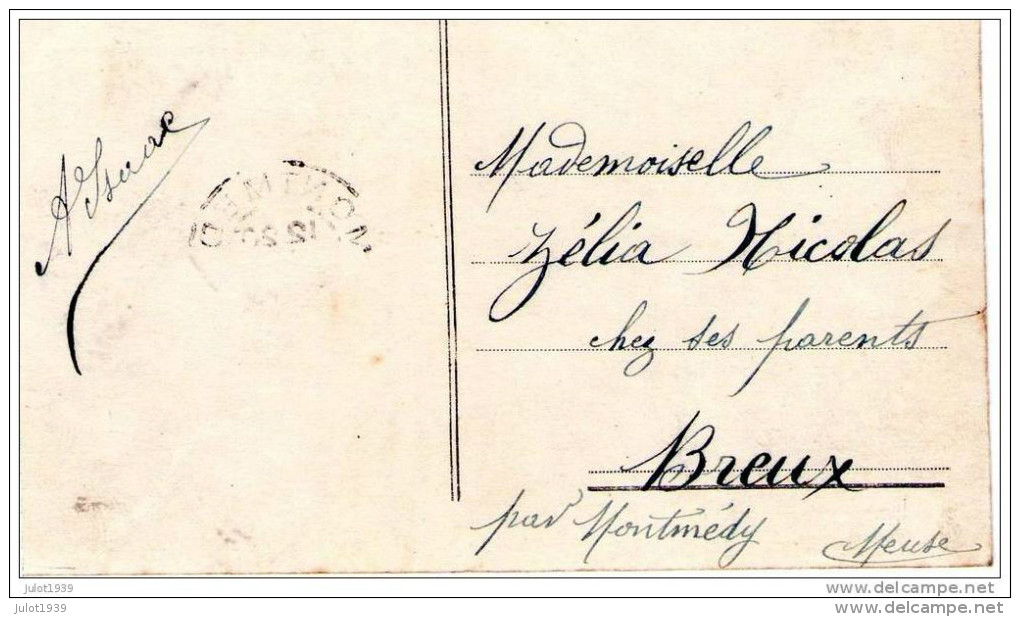 A Isaac
Mademoiselle
Zélia Nicolas
chez ses parents
Breux
par Montmédy
Meuse
julot1939
julot1939
www.delcampe.net
www.delcampe.net